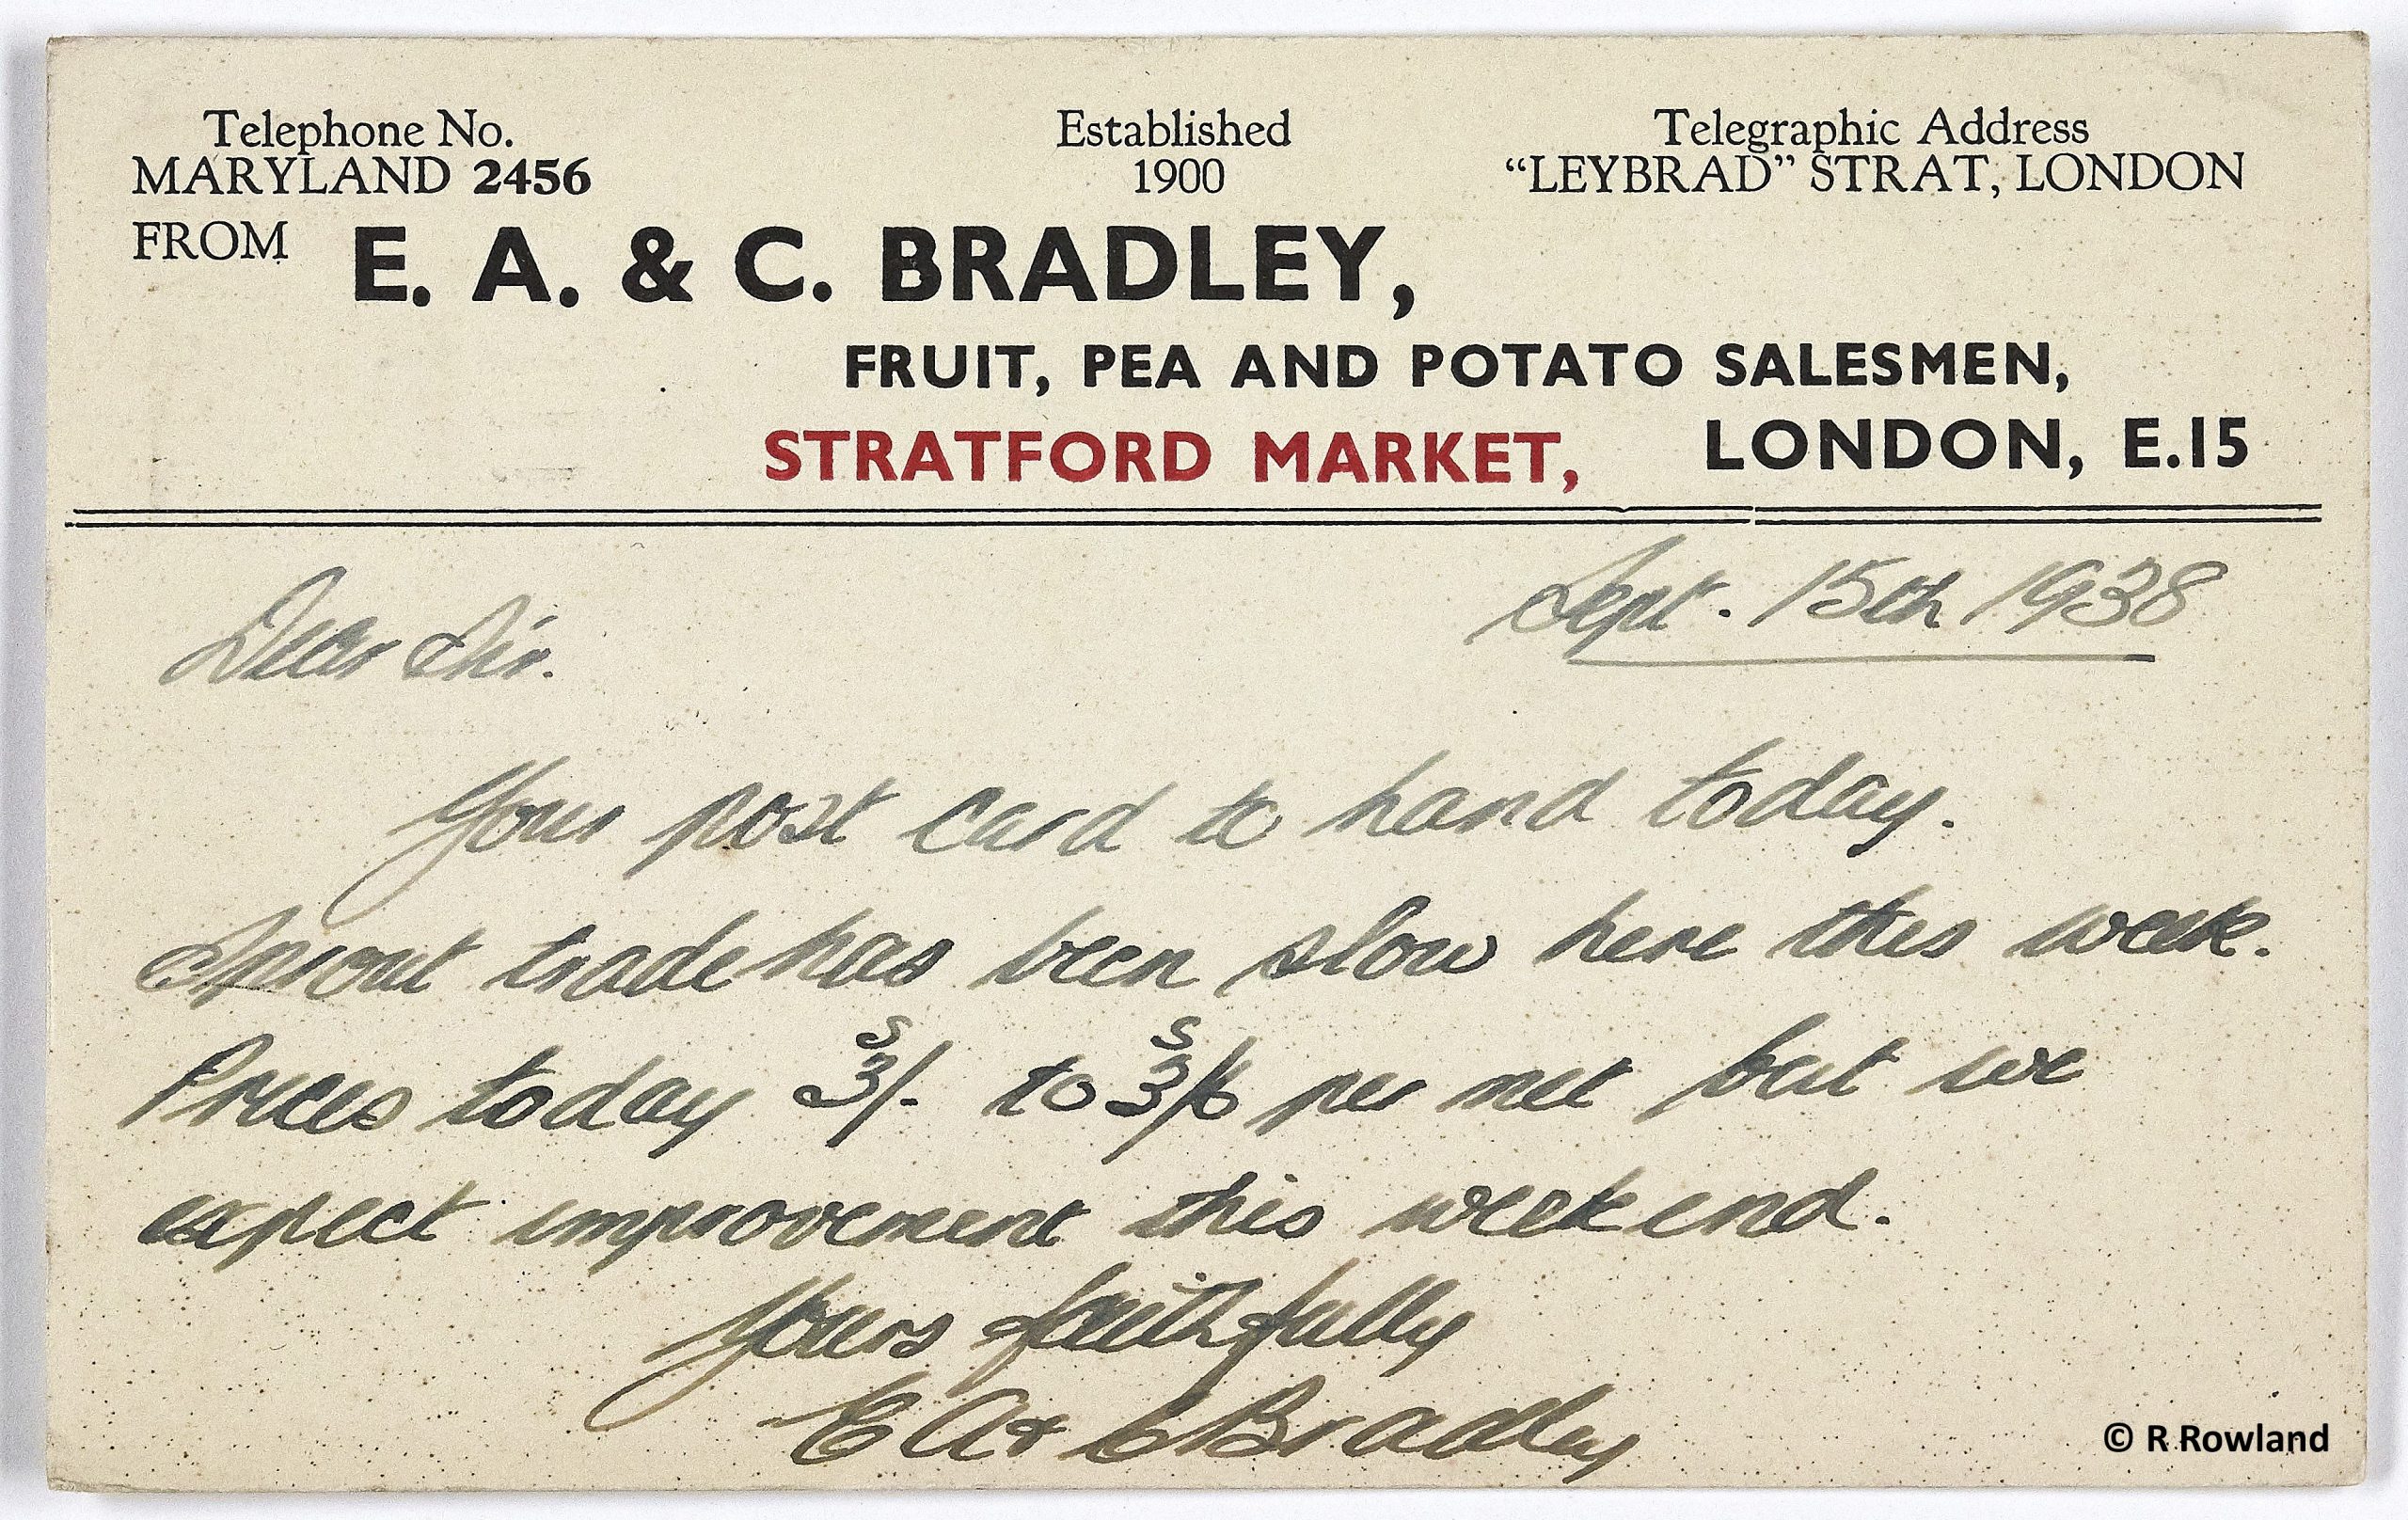 Telephone No.
MARYLAND 2456
Established
1900
Telegraphic Address
“LEYBRAD” STRAT, LONDON
FROM E. A. & C. BRADLEY,
FRUIT, PEA AND POTATO SALESMEN,
STRATFORD MARKET, LONDON, E.15
Sept. 15th 1938
Dear Sir.
Your post card to hand today.
Sprout trade has been slow here this week.
Prices today 3s/- to 3s/6 per net but we
expect improvement this weekend.
Yours faithfully
E A & C Bradley
© R Rowland